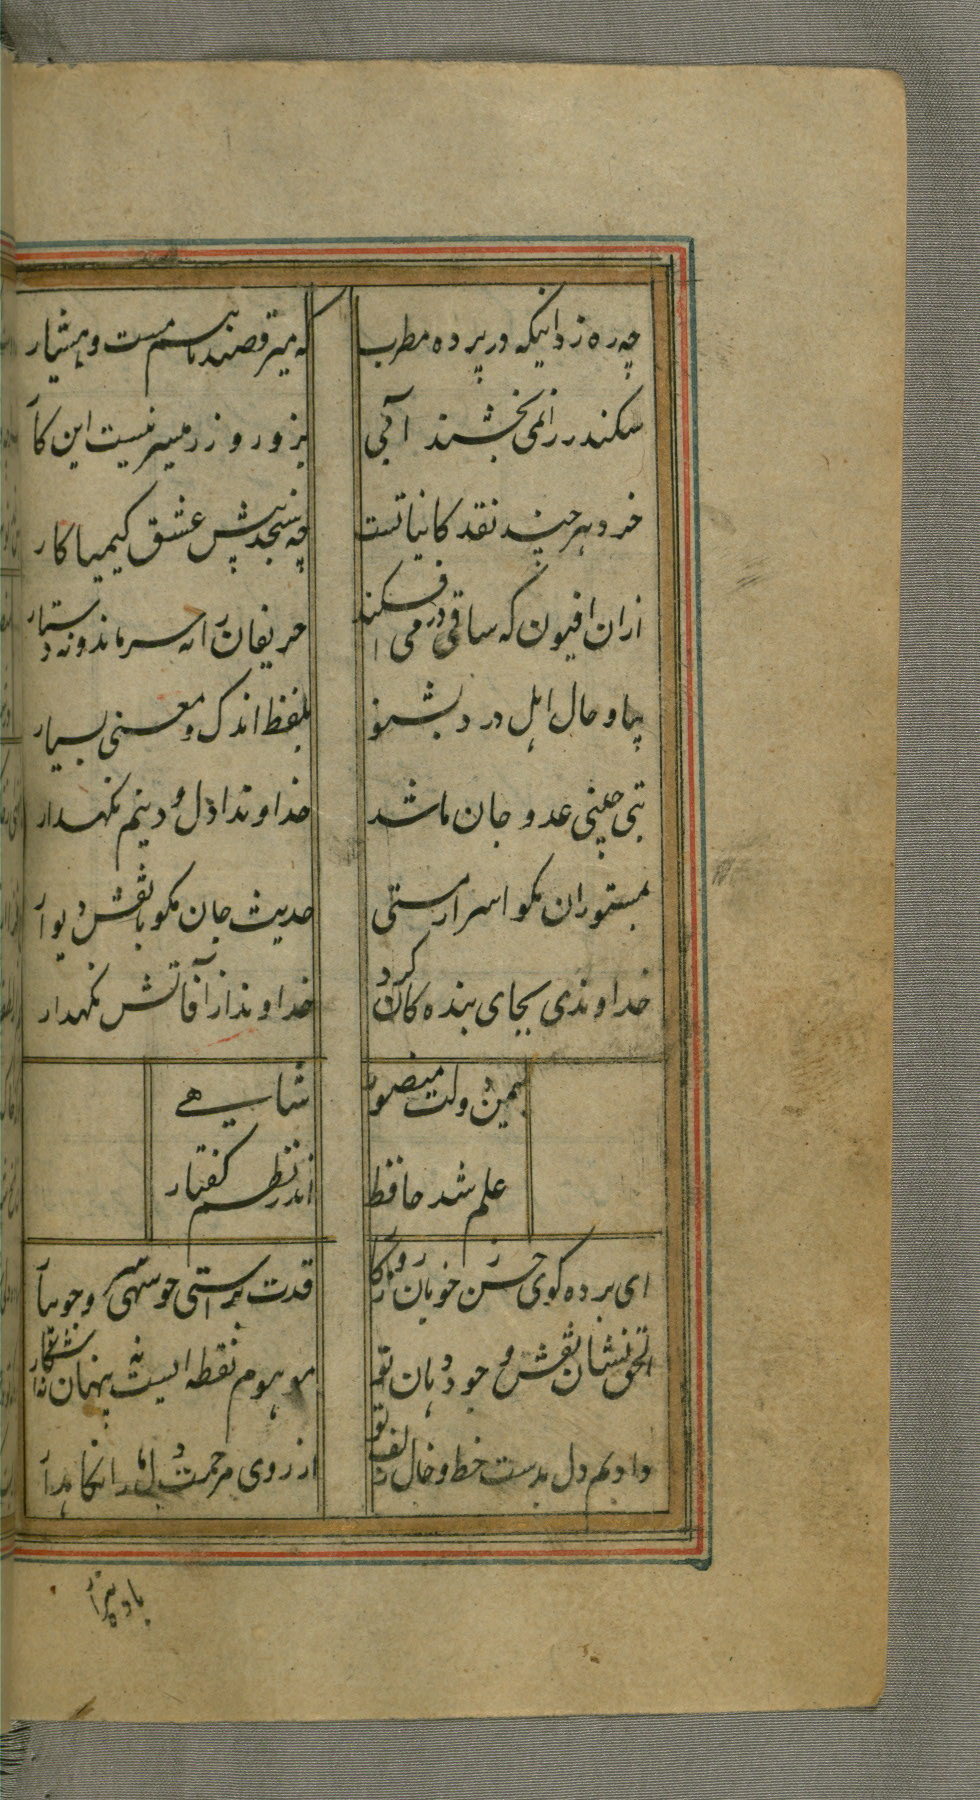 چه ره زد اینکه در پرده مطرب که میرقصند باهم مست و هشیار
سکندر را نمی بخشند آبی بزور و زر میسر نیست این کار
خرد هر چند نقد کایناتست چه سنجد پیش عشق کیمیا کار
ازان افیون که ساقی در می افکند حریفان را نه سر ماند و نه دستار
بیا و حال اهل درد بشنو بلفظ اندک و معنی بسیار
بتی چینی عدو جان ما شد خداوندا دل و دینم نکهدار
بمستوران مکو اسرار مستی حدیث جان مکو با نقش دیوار
خداوندی بجای بنده کان کرد خداوندا ز آفاتش نکهدار
بیمن دولت منصور شاهی
علم شد حافظ اندر نظم کفتار
ای برده کوی حسن ز خوبان روزکار قدت براستی چو سهی سرو جویبار
الحق نشان نقش وجود دهان تو موهوم نقطه ایست نه پنهان نه آشکار
دادیم دل بدست خط و خال زلف تو از روی مرحمت دل ما را نکاهدار